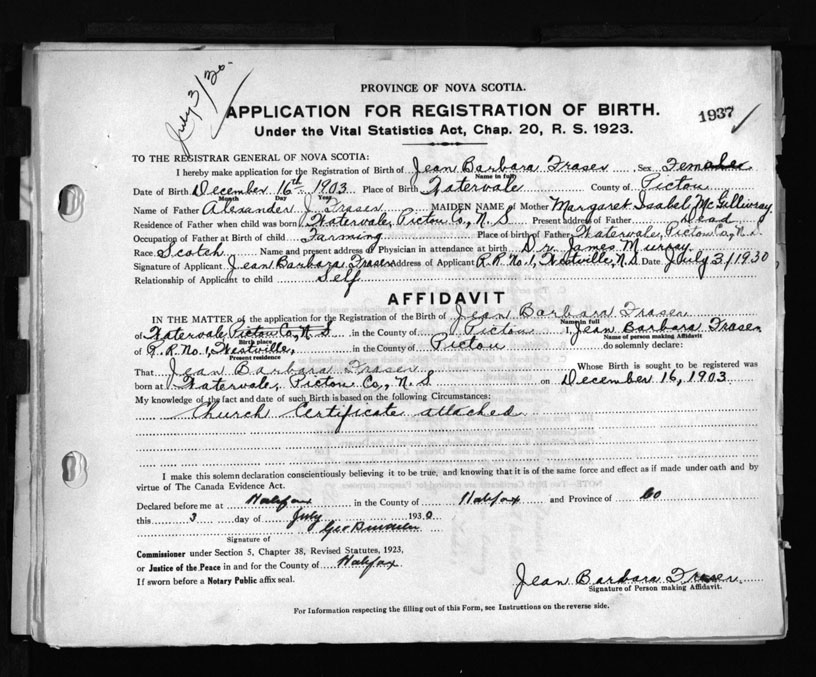 July 3/30
PROVINCE OF NOVA SCOTIA.
APPLICATION FOR REGISTRATION OF BIRTH.
1937
Under the Vital Statistics Act, Chap. 20, R. S. 1923.
TO THE REGISTRAR GENERAL OF NOVA SCOTIA:
I hereby make application for the Registration of Birth of Jean Barbara Fraser Sex Female
Name in full
Date of Birth December 16th 1903 Place of Birth Watervale County of Pictou
Month Day Year
Name of Father Alexander J. Fraser MAIDEN NAME of Mother Margaret Isabel McGillivray
Residence of Father when child was born Watervale, Pictou Co., N. S. Present address of Father dead
Occupation of Father at Birth of child Farming Place of birth of Father Watervale, Pictou Co., N.S.
Race Scotch Name and present address of Physician in attendance at birth Dr. James Murray
Signature of Applicant Jean Barbara Fraser Address of Applicant R.R. No. 1, Westville, N.S. Date July 3/1930
Relationship of Applicant to child Self
AFFIDAVIT
IN THE MATTER of the application for the Registration of the Birth of Jean Barbara Fraser
Name in full
of Watervale, Pictou Co., N. S. in the County of Pictou I, Jean Barbara Fraser
Birth place Name of person making Affidavit
of R.R. No. 1, Westville, in the County of Pictou do solemnly declare:
Present residence
That Jean Barbara Fraser Whose Birth is sought to be registered was
born at Watervale, Pictou Co., N. S. on December 16, 1903.
My knowledge of the fact and date of such Birth is based on the following Circumstances:
Church Certificate attached
I make this solemn declaration conscientiously believing it to be true, and knowing that it is of the same force and effect as if made under oath and by
virtue of The Canada Evidence Act.
Declared before me at Halifax in the County of Halifax and Province of
this 3 day of July 1930
Geo
Signature of
Commissioner under Section 5, Chapter 38, Revised Statutes, 1923,
or Justice of the Peace in and for the County of Halifax
If sworn before a Notary Public affix seal.
Jean Barbara Fraser
Signature of Person making Affidavit.
For Information respecting the filling out of this Form, see Instructions on the reverse side.